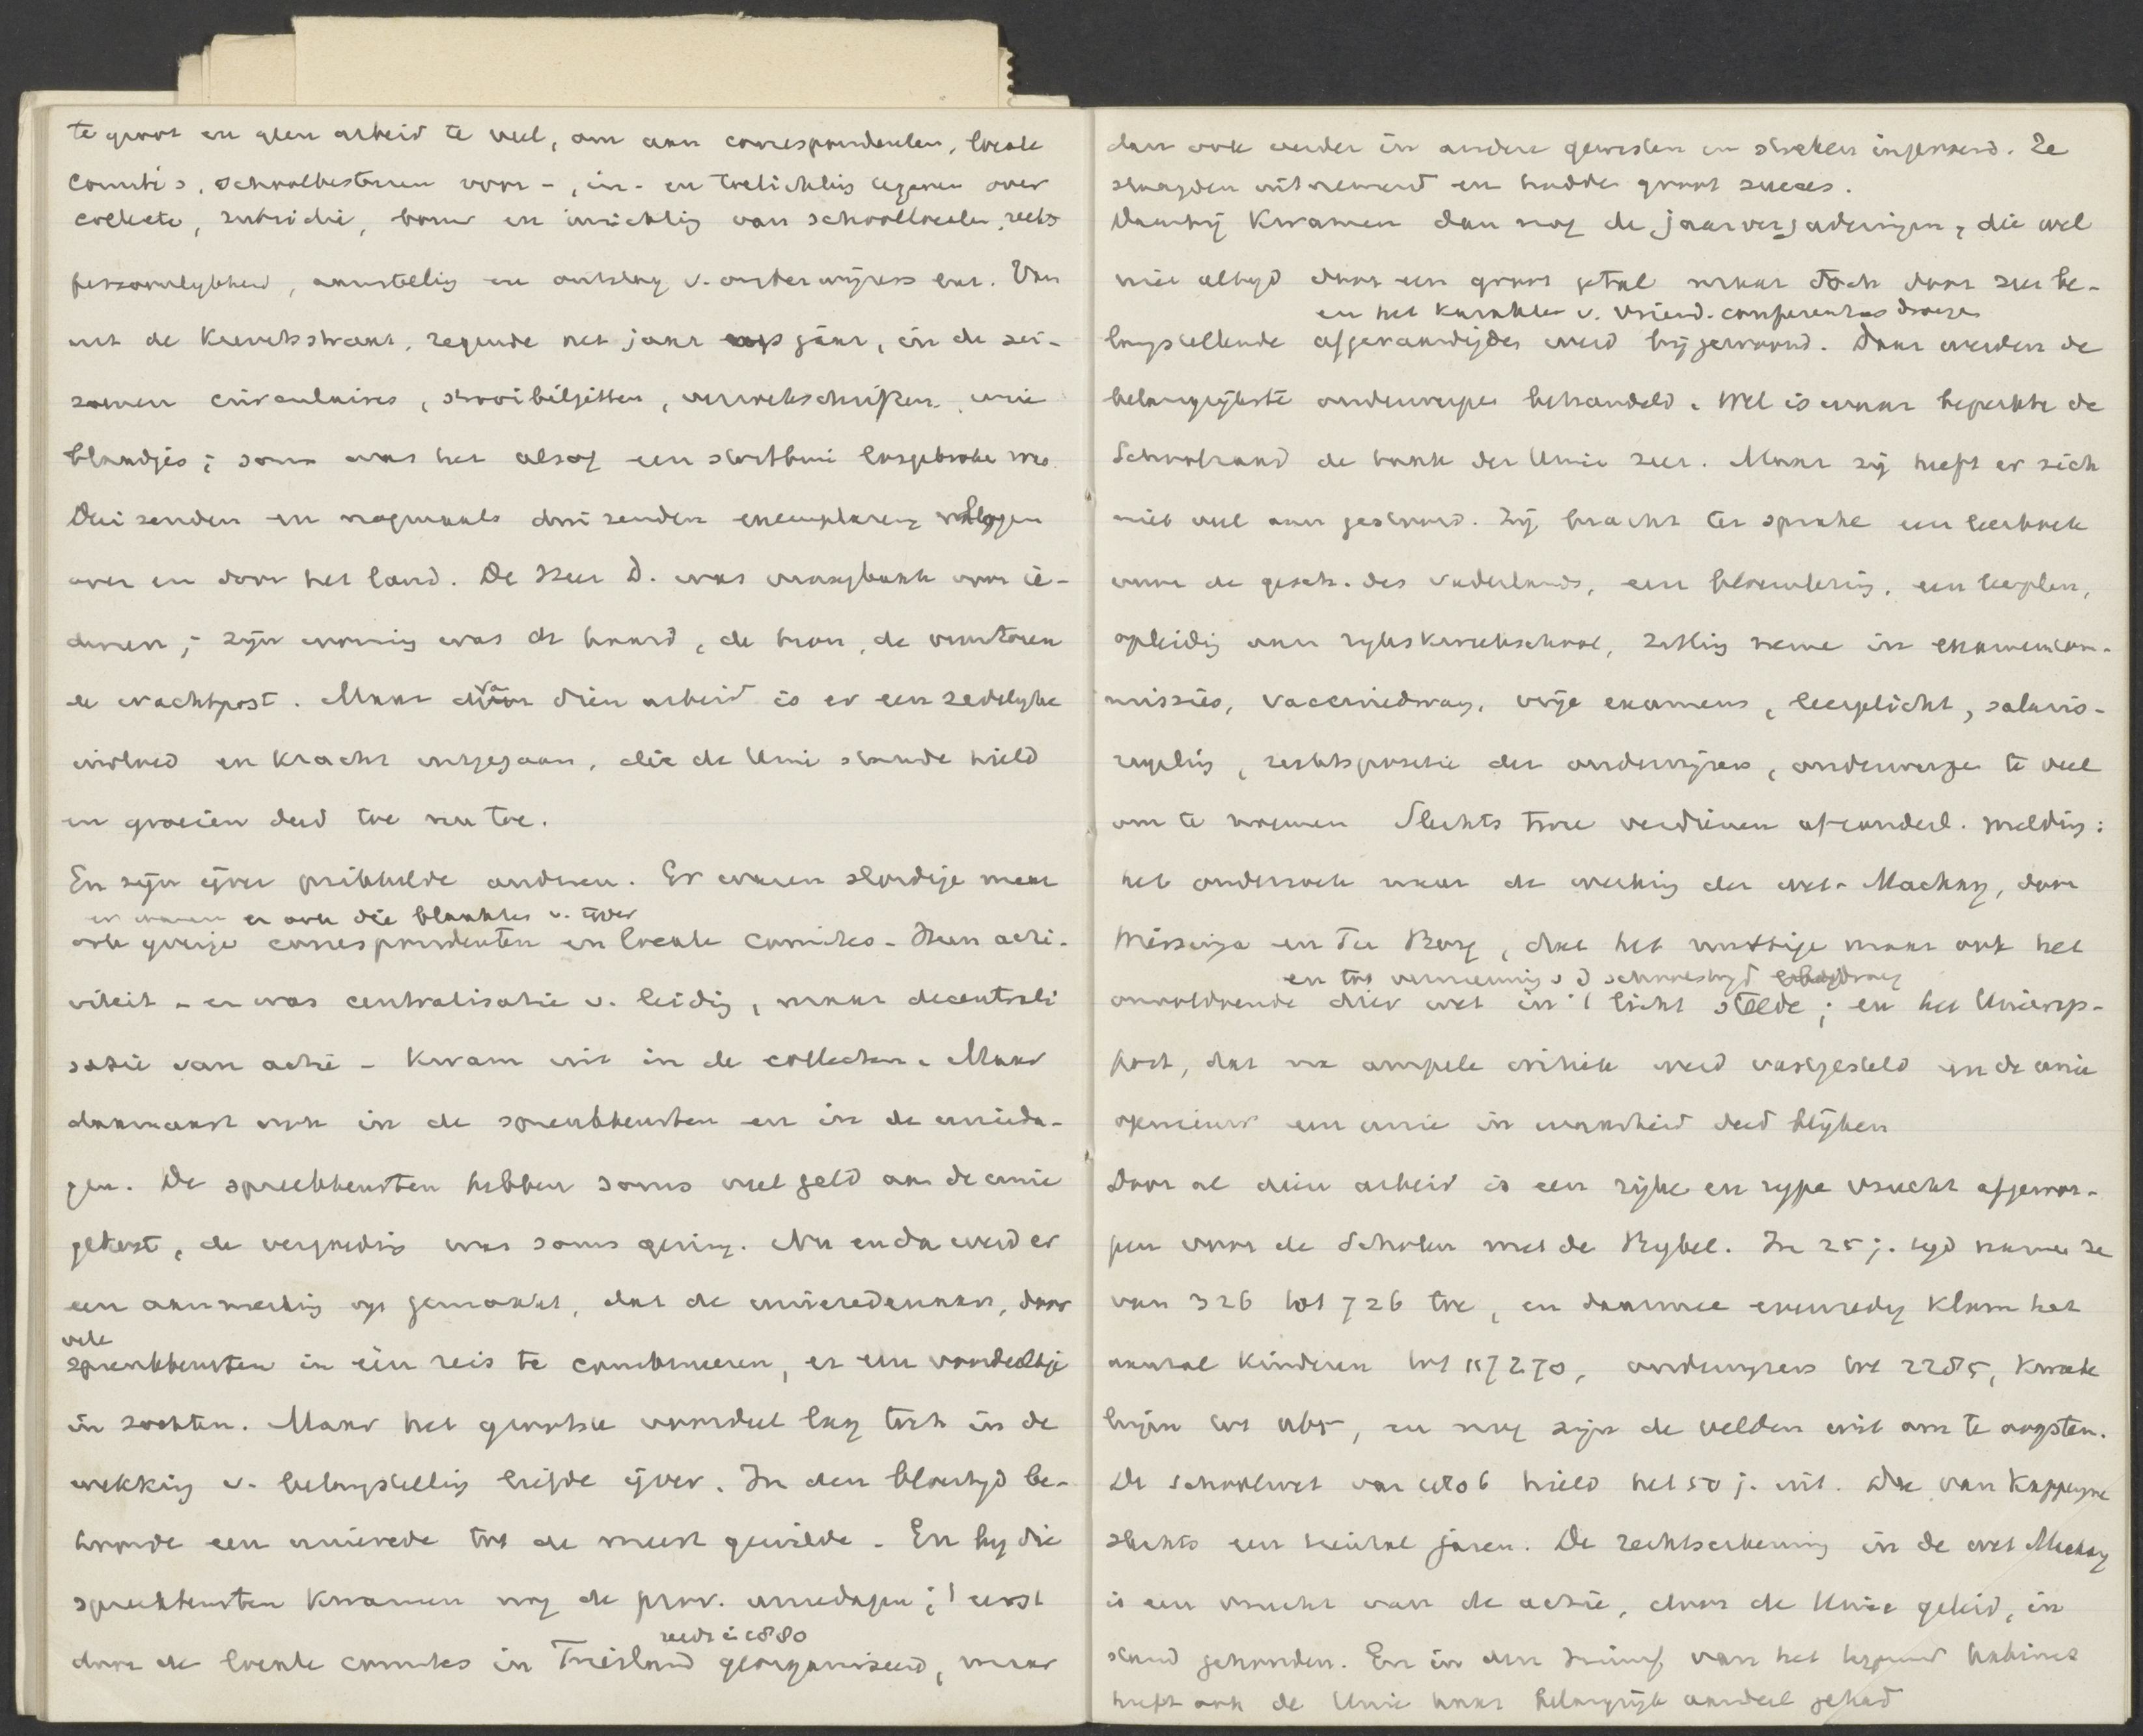 te groot en geen arbeid te veel, om aan correspondenten, locale
comité's, schoolbesturen voor-, in- en toelichting te geven over
collecte, subsidie, bouw en inrichting van schoollocalen, rechts
persoonlykheid, aanstelling en ontslag v. onderwijzers enz. Van
uit de Keverstraat, regende het jaar op jaar, in de sei-
zoenen circulaires, strooibiljetten, verzoekschriften, unie
blaadjes; soms was het alsof een stortbui losgebroken was.
Duizenden en nogmaals duizenden exemplaren vlogen
over en door het land. De Heer D. was vraagbaak voor ie-
dereen; zijn woning was de haard, de bron, de vuurtoren
de wachtpost. Maar van dien arbeid is er een zedelyke
invloed en kracht uitgegaan, die de Unie staande hield
en groeien deed toe nu toe.
En zijn ijver prikkelde anderen. Er waren slordige maar
er waren er ook die blaakten v. ijver
ook ijverige correspondenten en locale comités. Hun acti-
viteit - er was centralisatie v. leiding, maar decentrali
satie van actie - kwam uit in de collecten. Maar
daarnaast ook in de spreekbeurten en in de unieda-
gen. De spreekbeurten hebben soms veel geld aan de unie
gekost, de vergoeding was soms gering. Nu en dan werd er
een aanmerking op gemaakt, dat de unieredenaars, door
vele
spreekbeurten in één reis te combineeren, er een voordeeltje
in zochten. Maar het grootste voordeel lag toch in de
wekking v. belangstelling liefde ijver. In den bloeityd be-
hoorde een unierede tot de meest gewilde. En by die
spreekbeurten kwamen nog de prov. uniedagen; 't eerst
reeds in 1880
door de locale comités in Friesland georganiseerd, maar
dan ook verder in andere gewesten en streken ingevoerd. Ze
slaagden uitnemend en hadden groot succes.
Daarbij kwamen dan nog de jaarvergaderingen, die wel
niet altyd door een groot getal maar toch door zeer be-
en het karakter v. vriend. conferenties droegen
langstellende afgevaardigden werd bijgewoond. Daar werden de
belangrijkste onderwerpen behandeld. Wel is waar beperkte de
Schoolraad de taak der Unie zeer. Maar zij heeft er zich
niet veel aan gestoord. Zij bracht ter sprake een leerboek
voor de gesch. des vaderlands, een bloemlezing, een leerplan,
opleiding aan rykskweekschool, zitting neme in examencom-
missies, vaccinedwang, vrije examens, leerplicht, salaris-
regeling, rechtspositie der onderwijzers, onderwerpen te veel
om te noemen. Slechts twee verdienen afzonderl. melding:
het onderzoek naar de werking der wet-Mackay, door
Mississippi en Ter Borg, dat het nuttige maar ook het
onvoldoende dier wet in 't licht stelde; en het Unierap-
port, dat na ampele critiek werd vastgesteld en de unie
opnieuw een unie in waarheid deed blijken
Door al deze arbeid is een rijke en rype vrucht afgewor-
pen voor de Scholen met de Bybel. In 25 j. tyd namen ze
van 326 tot 726 toe, en daarmee evenredig klom het
aantal kinderen tot 117270, onderwyzers tot 2285, kweek
lingen tot , en nog zijn de velden wit om te oogsten.
De schoolwet van 1806 hield het 50 j. uit. Die van Kappeyne
slechts een tiental jaren. De rechtserkenning in de wet Mackay
is een vrucht van de actie, door de Unie geleid, in
stand gehouden. En in den triumf van het kabinet
heeft ook de Unie haar belangrijk aandeel gehad